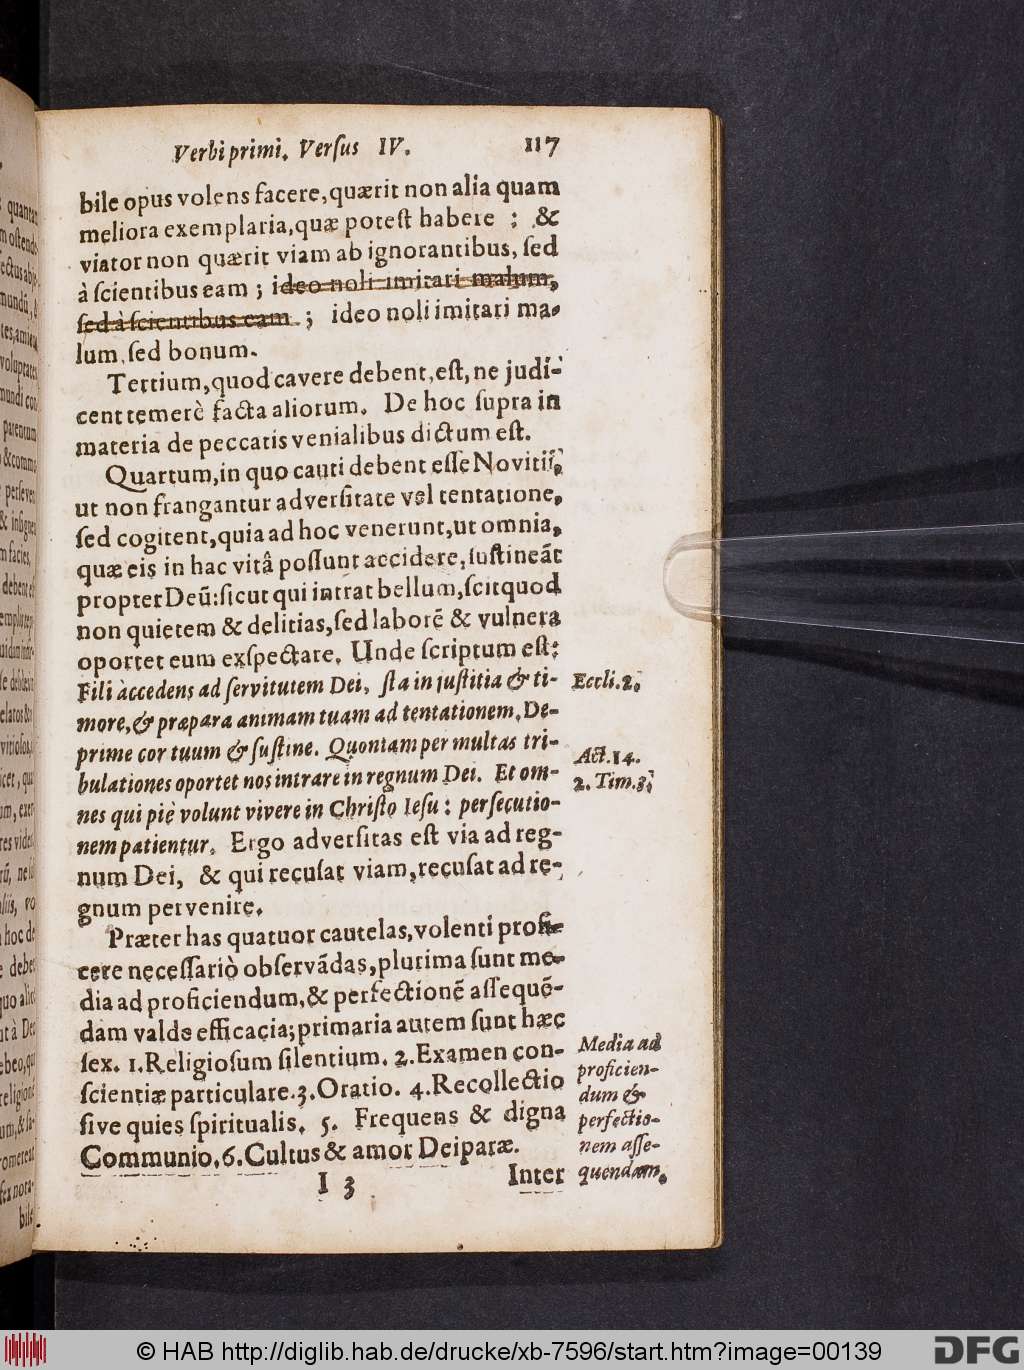 Verbi primi. Versus IV. 117
bile opus volens facere, quærit non alia quam
meliora exemplaria, quæ potest habere ; &
viator non quærit viam ab ignorantibus, sed
à scientibus eam ; ideo noli imitari malum,
sed à scientibus eam ; ideo noli imitari ma-
lum, sed bonum.
Tertium, quod cavere debent, est, ne judi-
cent temerè facta aliorum. De hoc supra in
materia de peccatis venialibus dictum est.
Quartum, in quo cauti debent esse Novitii,
ut non frangantur adversitate vel tentatione,
sed cogitent, quia ad hoc venerunt, ut omnia,
quæ eis in hac vitâ possunt accidere, sustineãt
propter Deũ: sicut qui intrat bellum, scit quod
non quietem & delitias, sed laborẽ & vulnera
oportet eum exspectare. Unde scriptum est:
Fili accedens ad servitutem Dei, sta in justitia & ti- Eccli. 2.
more, & præpara animam tuam ad tentationem. De-
prime cor tuum & sustine. Quoniam per multas tri- Act. 14.
bulationes oportet nos intrare in regnum Dei. Et om- 2. Tim. 3.
nes qui piè volunt vivere in Christo Iesu : persecutio-
nem patientur. Ergo adversitas est via ad reg-
num Dei, & qui recusat viam, recusat ad re-
gnum pervenire.
Præter has quatuor cautelas, volenti profi-
cere necessariò observãdas, plurima sunt me-
dia ad proficiendum, & perfectionẽ assequẽ-
dam valde efficacia; primaria autem sunt hæc
sex. 1. Religiosum silentium. 2. Examen con-
scientiæ particulare. 3. Oratio. 4. Recollectio
sive quies spiritualis. 5. Frequens & digna
Communio. 6. Cultus & amor Deiparæ.
Media ad
proficien-
dum &
perfectio-
nem asse-
quendam.
I 3 Inter
© HAB http://diglib.hab.de/drucke/xb-7596/start.htm?image=00139
DFG